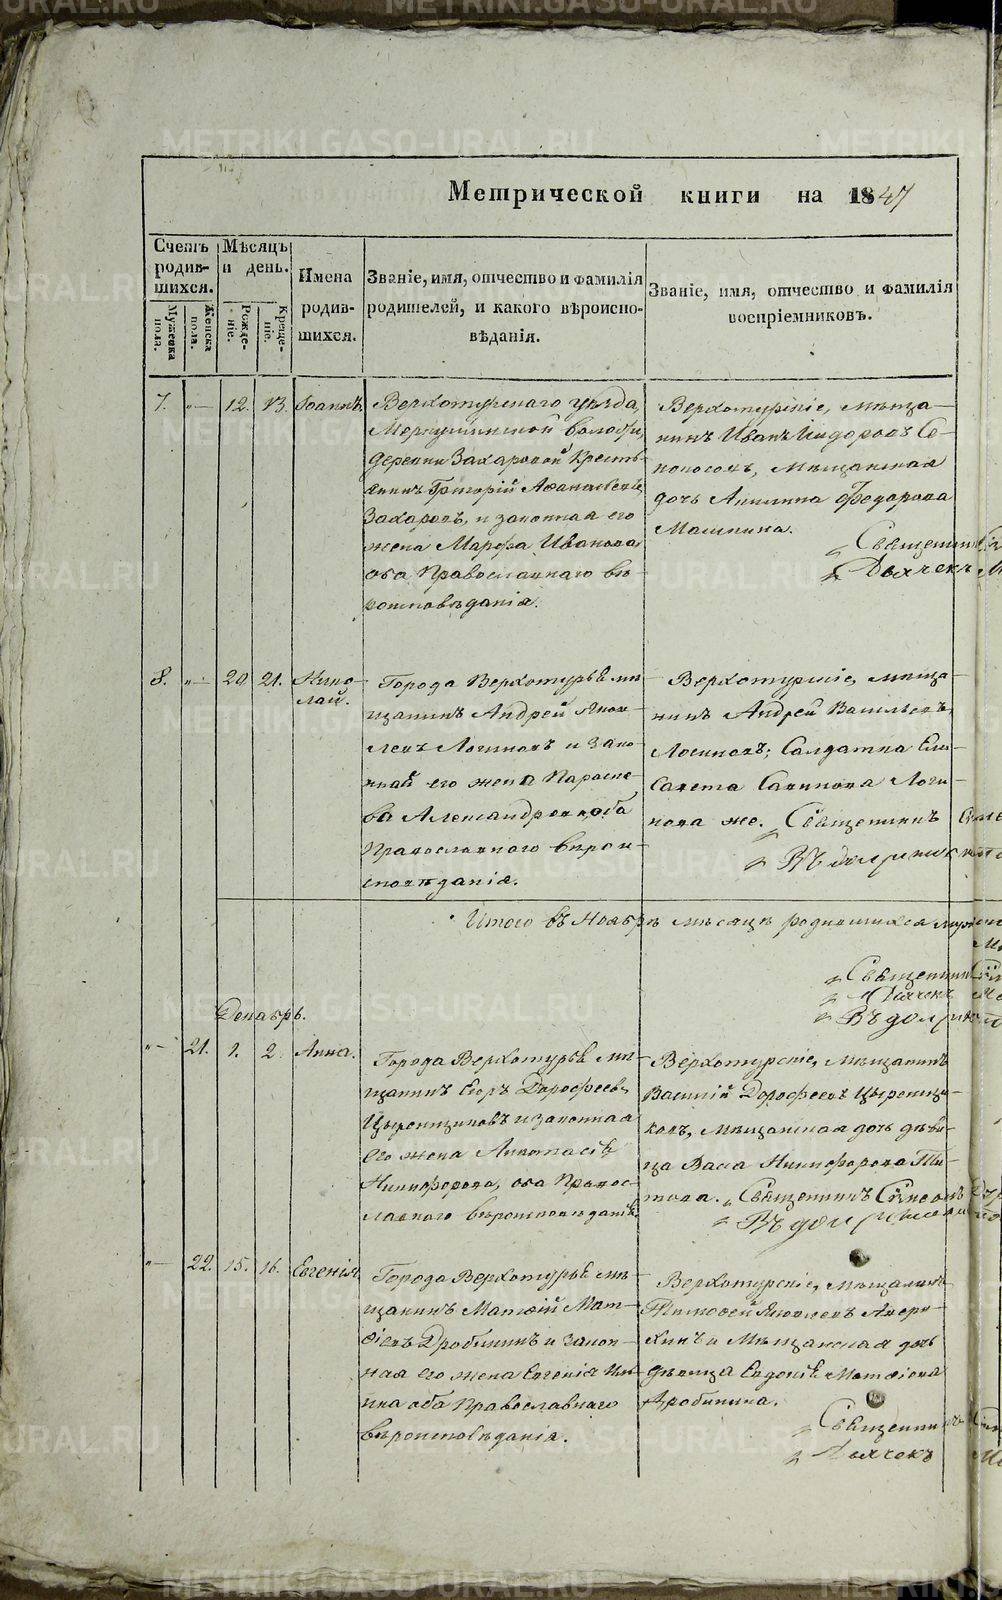 METRIKI.GASO-URAL.RU
Метрической книги на 1847
Счетъ родившихся.
Мужеска пола.
Женска пола.
Мѣсяцъ и день.
Рожденіе.
Крещеніе.
Имена родившихся.
Званіе, имя, отчество и фамилія
родителей, и какого вѣроиспо-
вѣданія.
Званіе, имя, отчество и фамилія
воспріемниковъ.
7. "— 12. 13. Іоаннъ.
Верхотурскаго уѣзда,
Меркушинской волости,
деревни Захаровой кресть-
янинъ Григорій Афанасьевъ
Захаровъ, и законная его
жена Марфа Иванова,
оба Православнаго вѣ-
роисповѣданія.
Верхотурскіе, мѣща-
нинъ Иванъ Исидоровъ
мѣщанская
дочь Акилина Федорова
Машкина.
Священникъ
Дьячекъ
8. "— 20. 21. Нико-
лай.
Города Верхотурья мѣ-
щанинъ Андрей Яков-
левъ Логиновъ и закон-
ная его жена Параске-
ва Александрова, оба
Православнаго вѣрои-
сповѣданія.
Верхотурскіе, мѣща-
нинъ Андрей Васильевъ
Логиновъ; Солдатка Ели-
савета Саввинова Логи-
нова же. Священникъ
Въ должност
Итого въ Ноябрѣ мѣсяцѣ родившихся
Священник
Дьячекъ
Въ должн
Декабрь.
"— 21. 1. 2. Анна.
Города Верхотурья мѣ-
щанинъ Егоръ Дорофеевъ
Цыренщиковъ и законная
его жена Анастасія
Никифорова, оба Правос-
лавнаго вѣроисповѣданія.
Верхотурскіе, мѣщанинъ
Василій Дорофеевъ Цыренщи-
ковъ, мѣщанская дочь дѣви-
ца Васса Никифорова Ти-
това. Священникъ Симеонъ
Въ должности
"— 22. 15. 16. Евгенія
Города Верхотурья мѣ-
щанинъ Матѳій Мат-
ѳіевъ Дробининъ и закон-
ная его жена Евгенія
оба Православнаго
вѣроисповѣданія.
Верхотурскіе, мѣщанинъ
Тимофей Яковлевъ
и мѣщанская дочь
дѣвица Евдокія Матѳіева
Дробинина.
Священникъ
Дьячекъ